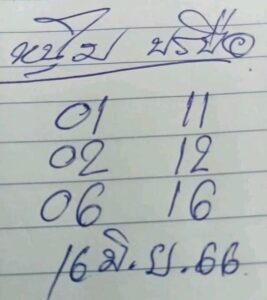 หนุ่ม บริบือ
01 11
02 12
06 16
16 มิ.ย.66